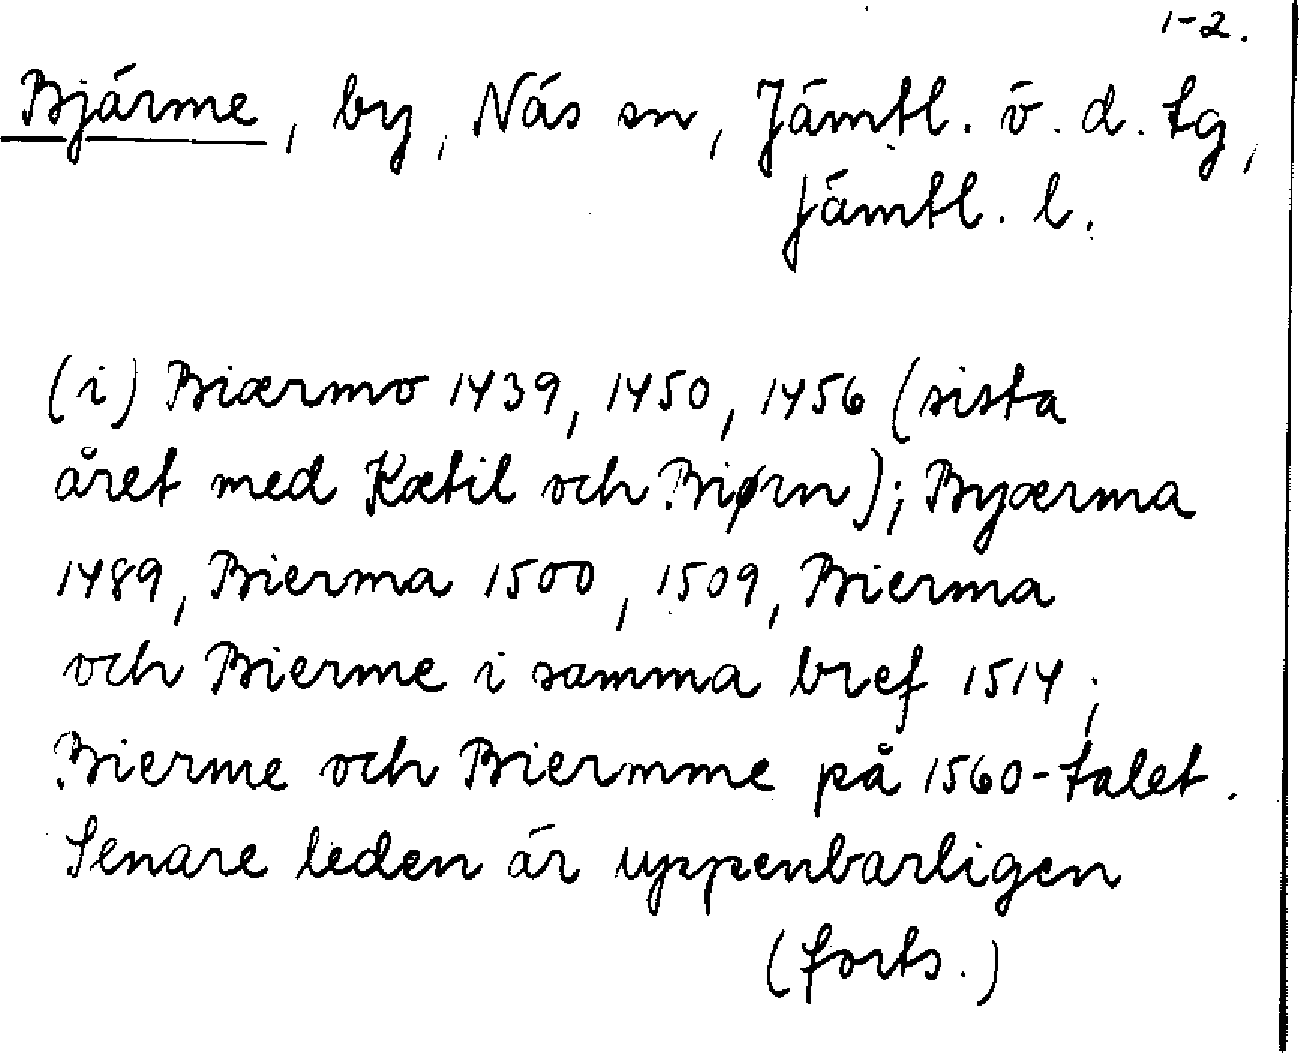 1-2.
Bjärme, by, Näs sn, Jämtl. ö. d. tg,
Jämtl. l.
(i) Biærmo 1439, 1450, 1456 (sista
året med Kætil och Biørn); Byærma
1489, Bierma 1500, 1509, Bierma
och Bierme i samma bref 1514;
Bierme och Biermme på 1560-talet.
Senare leden är uppenbarligen
(forts.)